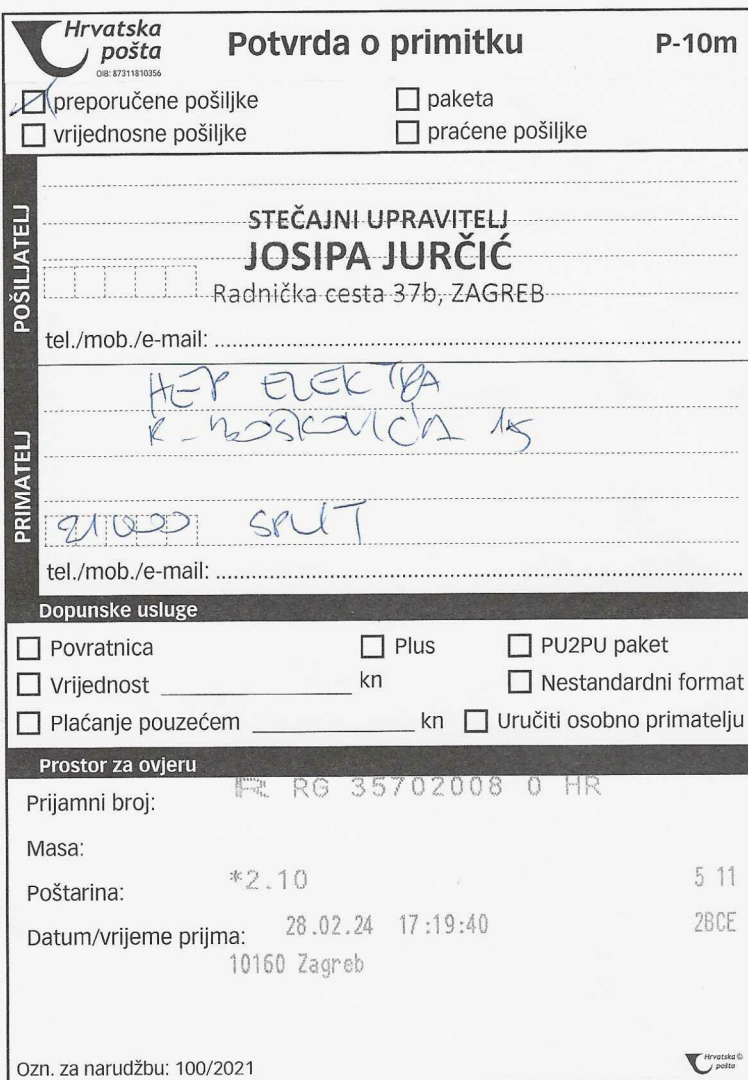 Hrvatska pošta
OIB: 87311810356
Potvrda o primitku
P-10m
preporučene pošiljke
paketa
vrijednosne pošiljke
praćene pošiljke
POŠILJATELJ
STEČAJNI UPRAVITELJ
JOSIPA JURČIĆ
Radnička cesta 37b, ZAGREB
tel./mob./e-mail:
PRIMATELJ
HEP ELEKTRA
R. BOŠKOVIĆA 15
21000 SPLIT
tel./mob./e-mail:
Dopunske usluge
Povratnica
Plus
PU2PU paket
Vrijednost kn
Nestandardni format
Plaćanje pouzećem kn
Uručiti osobno primatelju
Prostor za ovjeru
Prijamni broj: R RG 35702008 0 HR
Masa:
Poštarina: *2.10 5 11
Datum/vrijeme prijma: 28.02.24 17:19:40 2BCE
10160 Zagreb
Ozn. za narudžbu: 100/2021
Hrvatska pošta